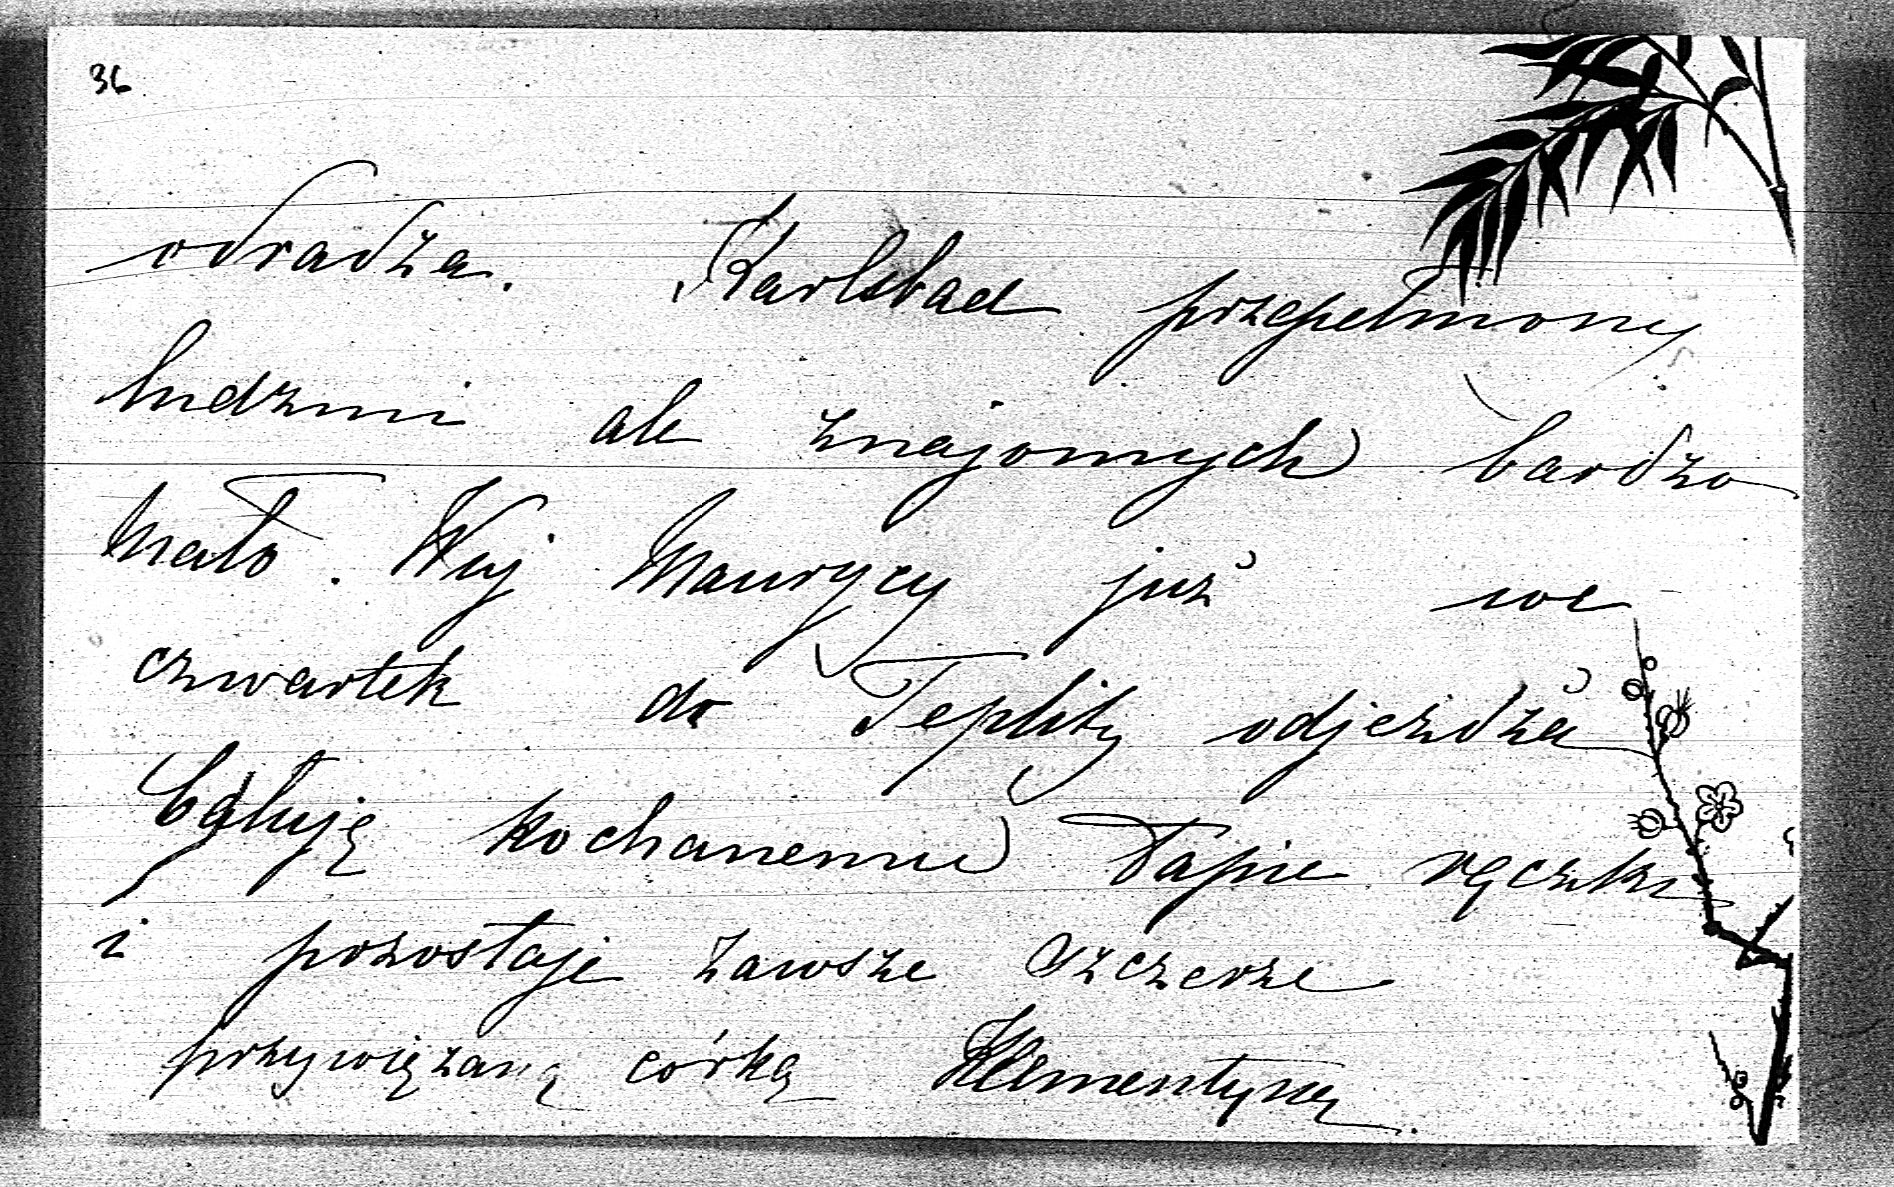 36
odradza. Karlsbad przepełniony
ludzmi ale znajomych bardzo
mało. Wuj Maurycy już we
czwartek do Teplitz odjeżdża
Całuję kochanemu Papie rączki
i pozostaję zawsze szczerze
przywiązaną córką Klementyną